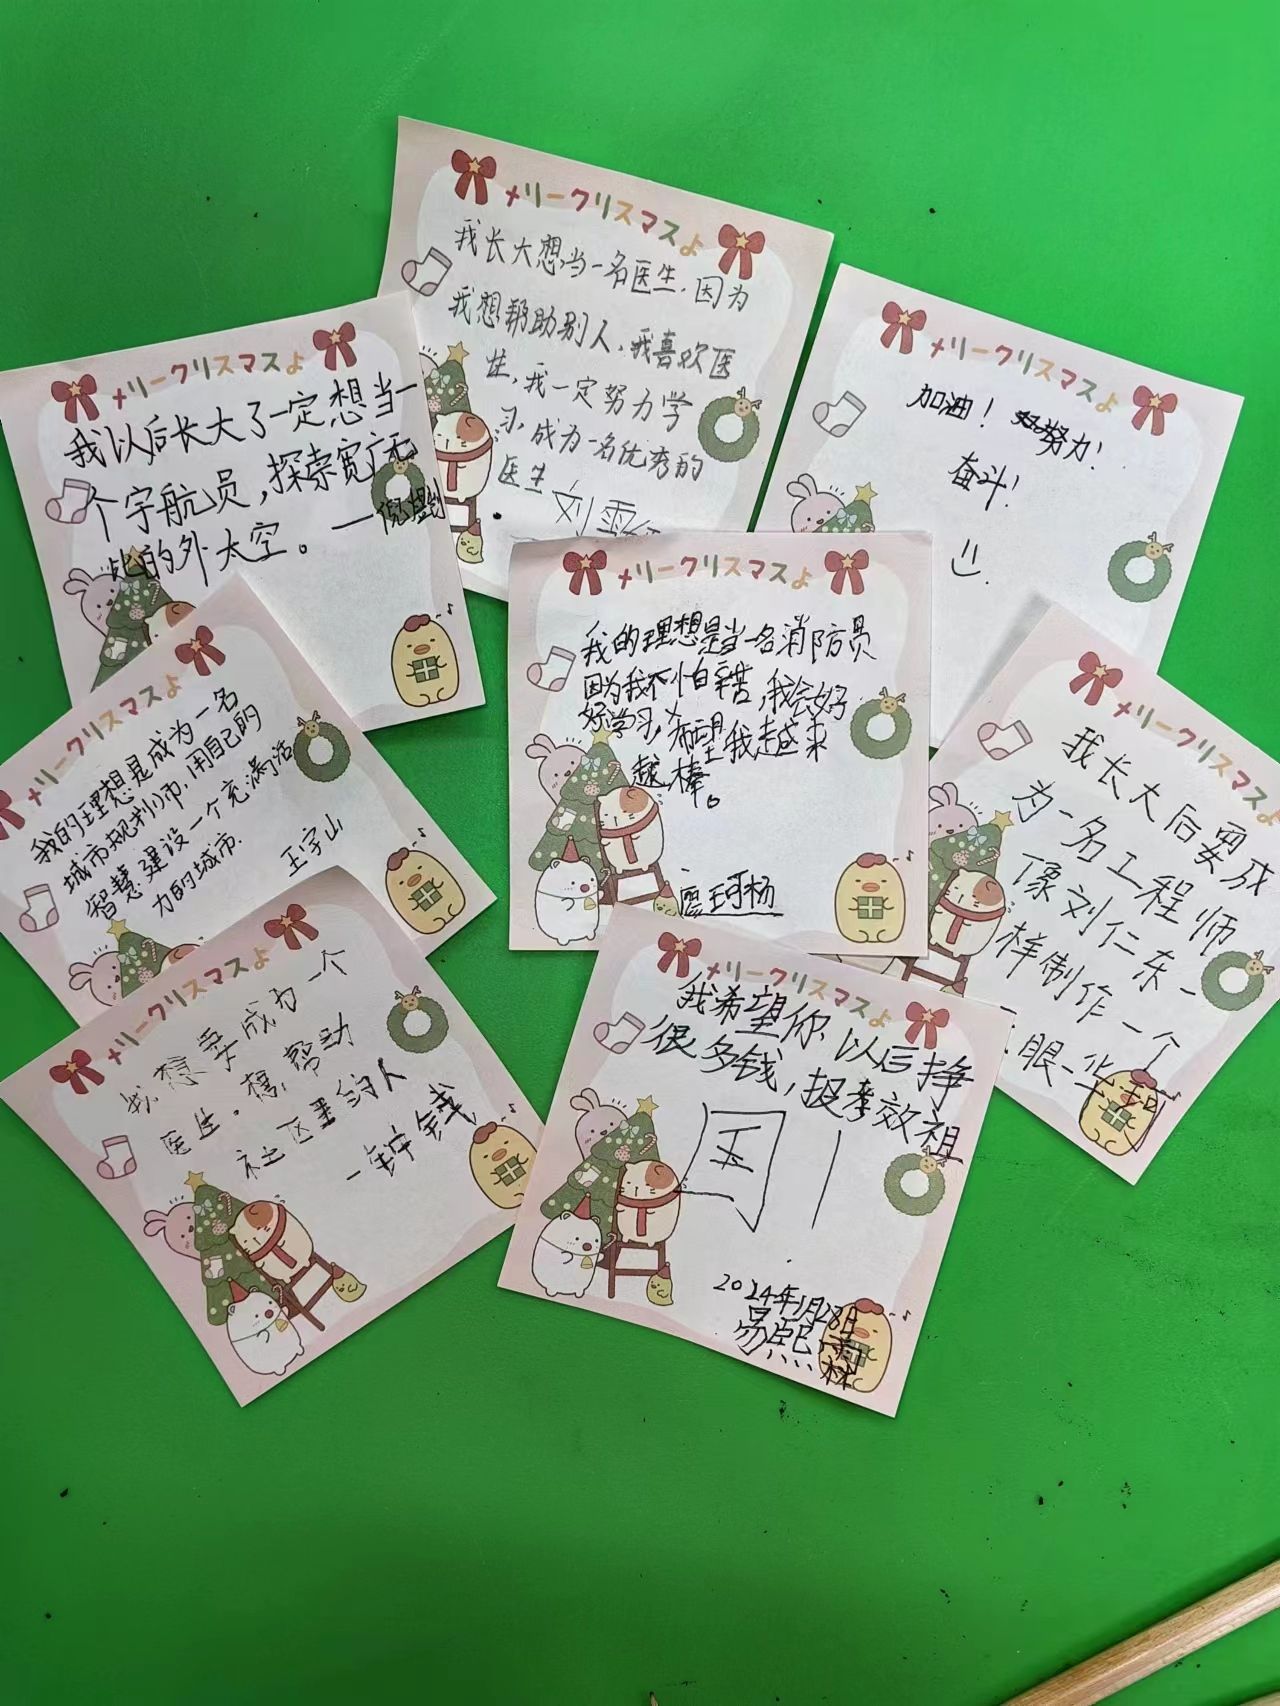 メリークリスマスよ
我长大想当一名医生,因为
我想帮助别人,我喜欢医
生,我一定努力学
习,成为一名优秀的
医生
刘雪
メリークリスマスよ
我以后长大了一定想当一
个宇航员,探索宽广无
比的外太空。
メリークリスマスよ
加油! 努力!
奋斗!
メリークリスマスよ
我的理想是当一名消防员
因为我不怕辛苦,我会好
好学习,希望我越来
越棒。
メリークリスマスよ
我的理想是成为一名
城市规划师,用自己的
智慧建设一个充满活
力的城市.
王宇山
メリークリスマスよ
我长大后要成
为一名工程师
像刘仁东一
样制作一个
眼
メリークリスマスよ
我想要成为一个
医生。想帮助
社区里的人
一钟钱
メリークリスマスよ
我希望你以后挣
很多钱,报孝效祖
国!
2024年1月28日
易熙雨
林